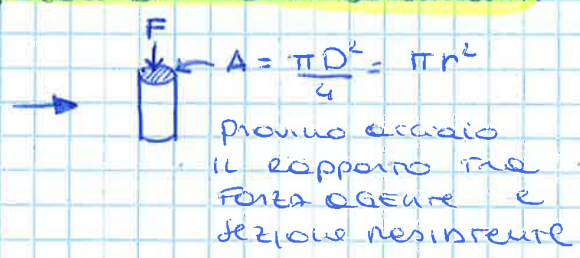 F
A = πD²/4 = πr²
provino acciaio
il rapporto tra
forza agente e
sezione resistente